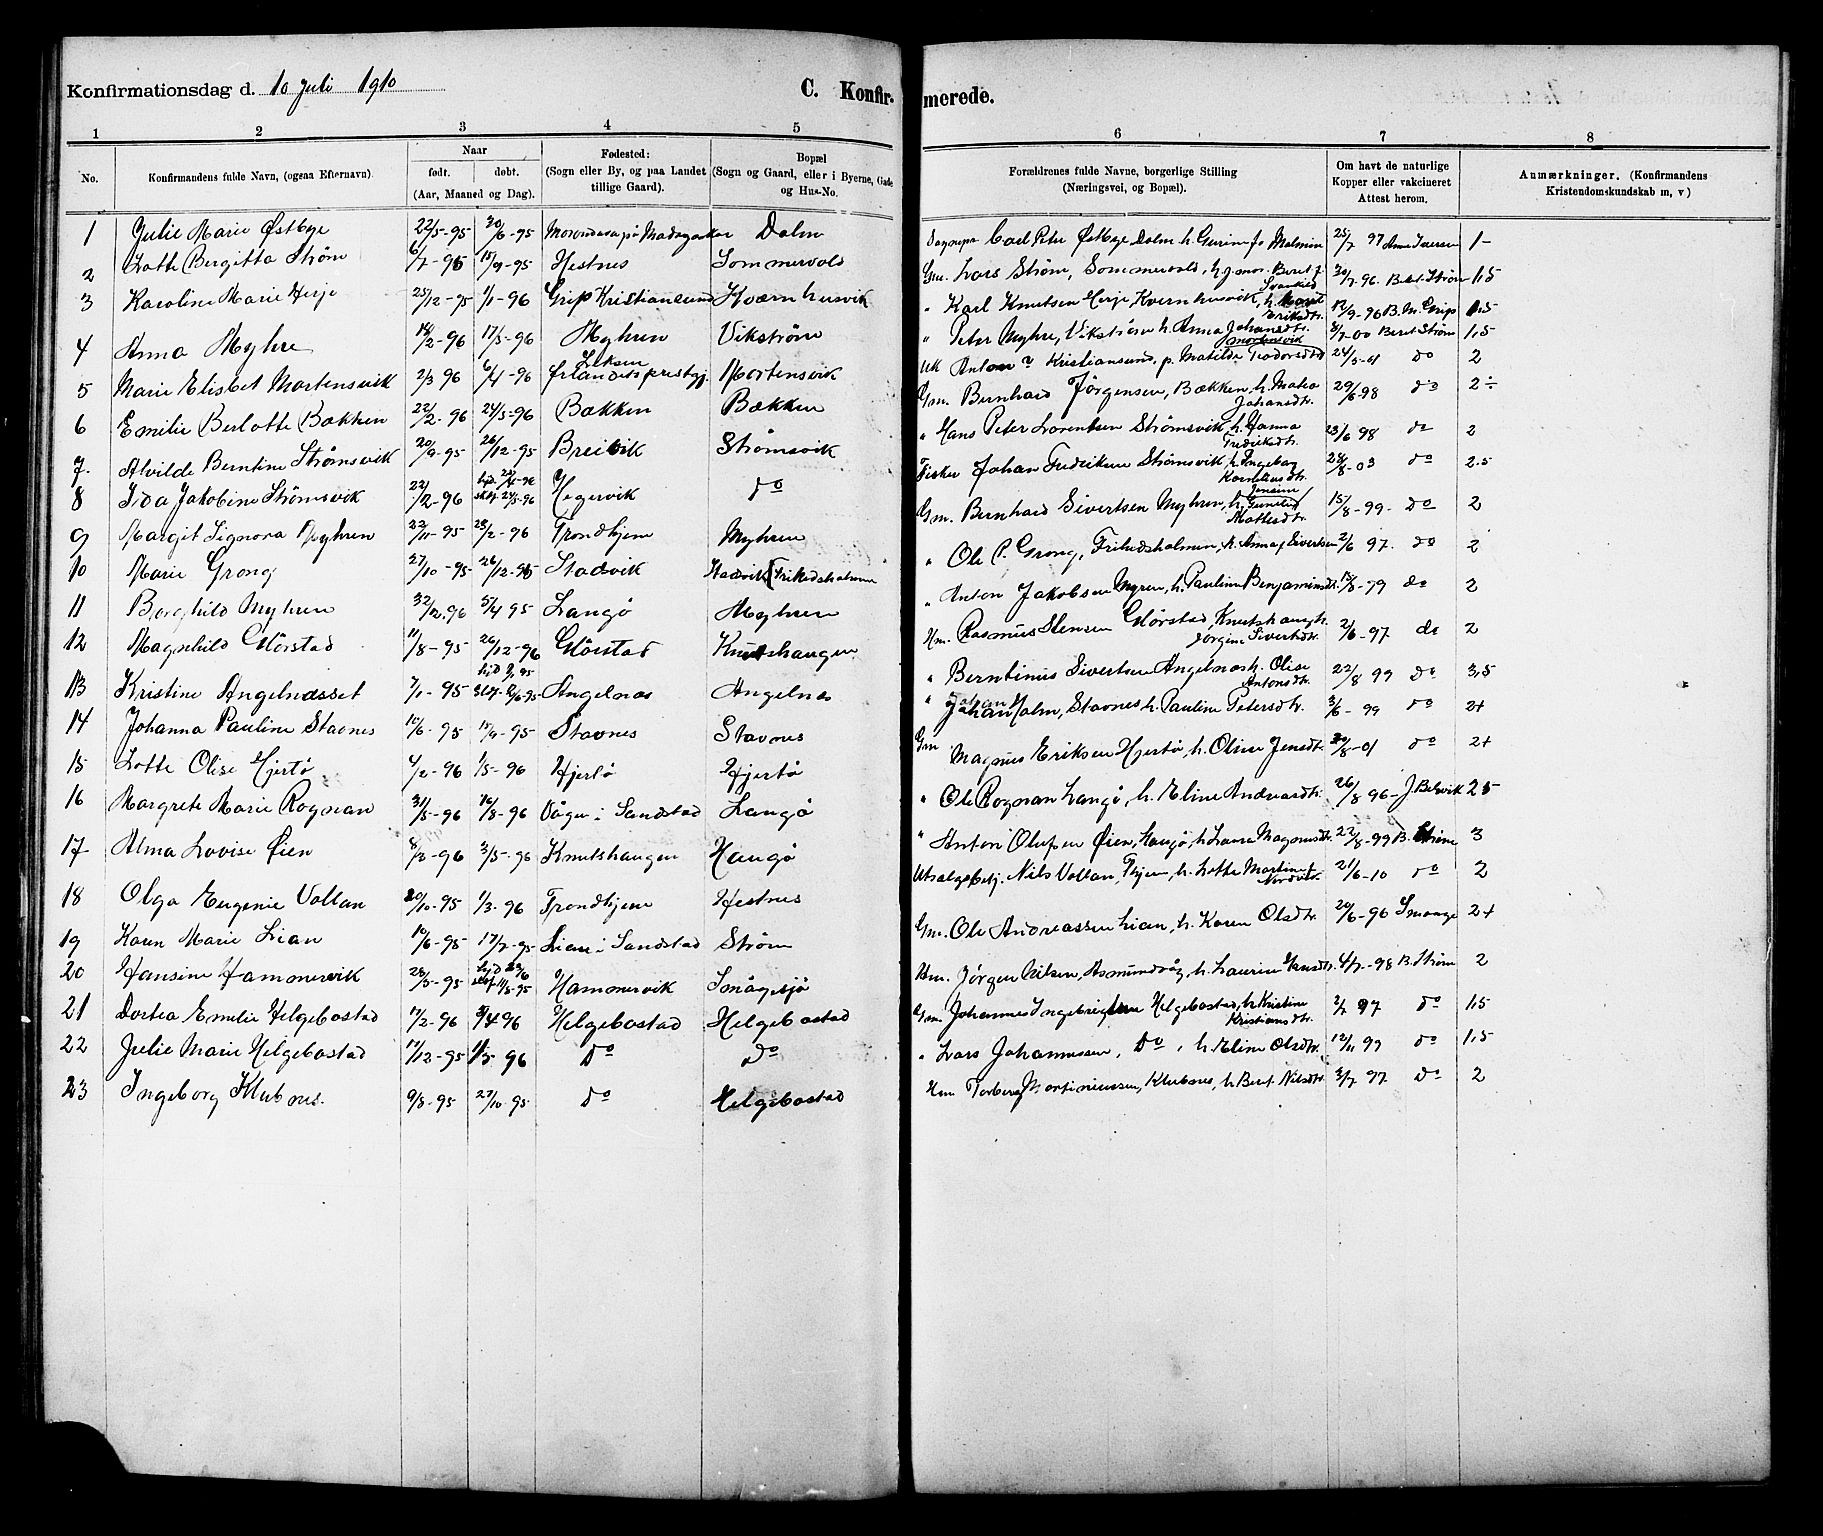 Konfirmationsdag d. 10 Juli 1910
C. Konfirmerede.
1 2 3 4 5 6 7 8
No.
Konfirmandens fulde Navn, (ogsaa Efternavn)
Naar
født. døbt.
(Aar, Maaned og Dag).
Fødested:
(Sogn eller By, og paa Landet
tillige Gaard).
Bopæl
(Sogn og Gaard, eller i Byerne, Gade
og Hus-No.
Forældrenes fulde Navne, borgerlige Stilling
(Næringsvei, og Bopæl).
Om havt de naturlige
Kopper eller vakcineret
Attest herom.
Anmærkninger. (Konfirmandens
Kristendomskundskab m, v)
1 Julie Marie Østbye 22/5-95 30/6-95 Morondava på Madagaskar Dolm Carl Peter Østbye Dolm h. Malmin 25/7 97 Anne Iversen 1-
2 Lotte Bergitta Strøm 6/7-95 15/9-95 Hestnes Sommervold Gm. Lars Strøm, Sommervold, h. Beret 30/7-96 Beret Strøm 1,5
3 Karoline Marie Herje 25/12-95 1/1-96 Grip Kristiansund Kværnhusvik " Karl Knutsen Herje, Kvernhusvik, h. Marit Eriksdtr. 12/9-96 B. M. Grip 1.5
4 Anna Myhre 18/2-96 17/5-96 Myhren Vikstrøm " Peter Myhre, Vikstrøm h. Anna Johansdtr. 8/7-00 Beret Strøm 1,5
5 Marie Elisbet Mortensvik 2/3 96 6/4-96 Ørlandets prestgj. Mortensvik Uk Anton ? Kristiansund, p. Matilde Teodorsdtr Mortensvik 24/5-01 do 2
6 Emilie Berlotte Bækken 22/2-96 24/5-96 Bækken Bækken Gm. Bernhard Jørgensen, Bækken, h. Maria Johansdtr. 29/6-98 do 2÷
7. Alvilde Berntine Strømsvik 20/9-95 26/12-95 Breivik Strømsvik " Hans Peter Lorentsen Strømsvik h. Hanna Fredriksdtr. 23/6 98 do 2
8 Ida Jakobine Strømsvik 22/2-96 Hegervik do Fisker Johan Fredriksen Strømsvik h. Ingeborg Korneliusdtr. 28/8-03 do 2.5
9 Margit Signora Myhren 22/11-95 28/2-96 Trondhjem Myhren Gm. Bernhard Sivertsen Myhren, h. Jensine Gunelie Mathisdtr. 15/8-99- do 2
10 Marie Grong 27/10-95 26/12-95 Stadvik Stadvik [Frihedsholmen " Ole P. Grong, Frihedsholmen, h. Anna Sivertsen 2/6 97. do 2
11 Borghild Myhren 5/4 95 Langø Myhren " Anton Jakobsen Myren, h. Pauline Benjaminsdtr. do 2
12 Magnhild Glørstad 11/8-95 26/12-96 Glørstad Knutshaugen Hm. Rasmus Hensen Glørstad, Knutshaug h. Jørgine Sivertsdtr. 2/6-97. do 2
13 Kristine Angelnæsset 7/1-95 Angelnæs Angelnæs " Berntinus Sivertsen Angelnæs h. Olise Antonsdtr. 22/8 99 do 3,5
14 Johanna Pauline Stavnes 10/6-95 15/9-95 Stavnes Stavnes " Johan Holm, Stavnes h. Pauline Petersdtr. 3/6-99 do 2+
15 Lotte Olise Hjertø 4/2-96 1/5-96 Hjertø Hjertø Gm Magnus Eriksen Hjertø, h. Oline Jensdtr. 29/8-01 do 2+
16 Margrete Marie Rognan 31/5-96 16/8-96 Vågen i Sandstad Langø " Ole Rognan Langø, h. Eline Andreasdtr. 26/8 96- J. Belsvik 2 5
17 Alma Lovise Øien 8/3-96 3/5-96 Knutshaugen Haugø " Anton Olufsen Øien, Haugø, h. Laura Magnusdtr. 22/8-99 B. Strøm 3
18 Olga Eugenie Vollan 20/10-95 1/3-96 Trondhjem Hestnes Utsalgsbestj. Nils Vollan, Thjem, h. Lotte Martine Nordvik 21/6-10 do 2
19 Karen Marie Lian 10/6-95 17/7-95 Lian i Sandstad Strøm Gm. Ole Andreassen Lian, h. Karen Olsdtr. 20/6-96 Smaage 2+
20 Hansine Hammervik 28/5-95 Hammervik Småge sjø Hm. Jørgen Nilsen, Asmundvåg, h. Laurine Hansdtr. 4/7-98 B. Strøm 2
21 Dortea Emelie Helgebostad 17/2-96 9/4 96 Helgebostad Helgebostad Gm. Johannes Ingebrigtsen Helgebostad, h. Kristine Kristiansdtr. 2/7 97 do 1,5
22 Julie Marie Helgebostad 17/12-95 1/3 96 Do do " Lars Johannessen, Do, h. Eline Olsdtr. 12/11 99 do 1,5
23 Ingeborg Klubnes. 9/8-95 27/10-95 Do Helgebostad Hm Torberg Martiniussen, Klubnes, h. Beret Nilsdtr. 3/7 97. do 2